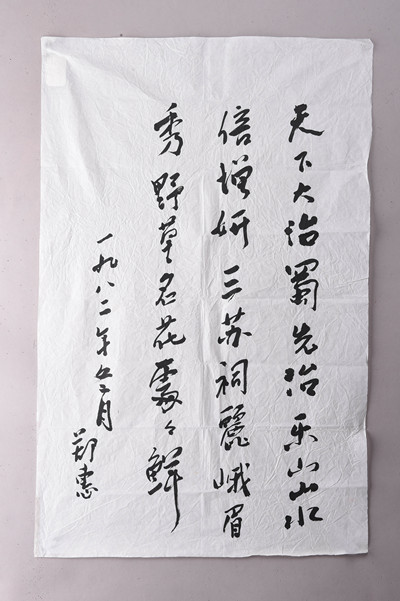 天下大治蜀先治乐山山水
倍增妍三苏祠丽峨眉
秀野草名花处々鲜
一九八二年五月
郑惠